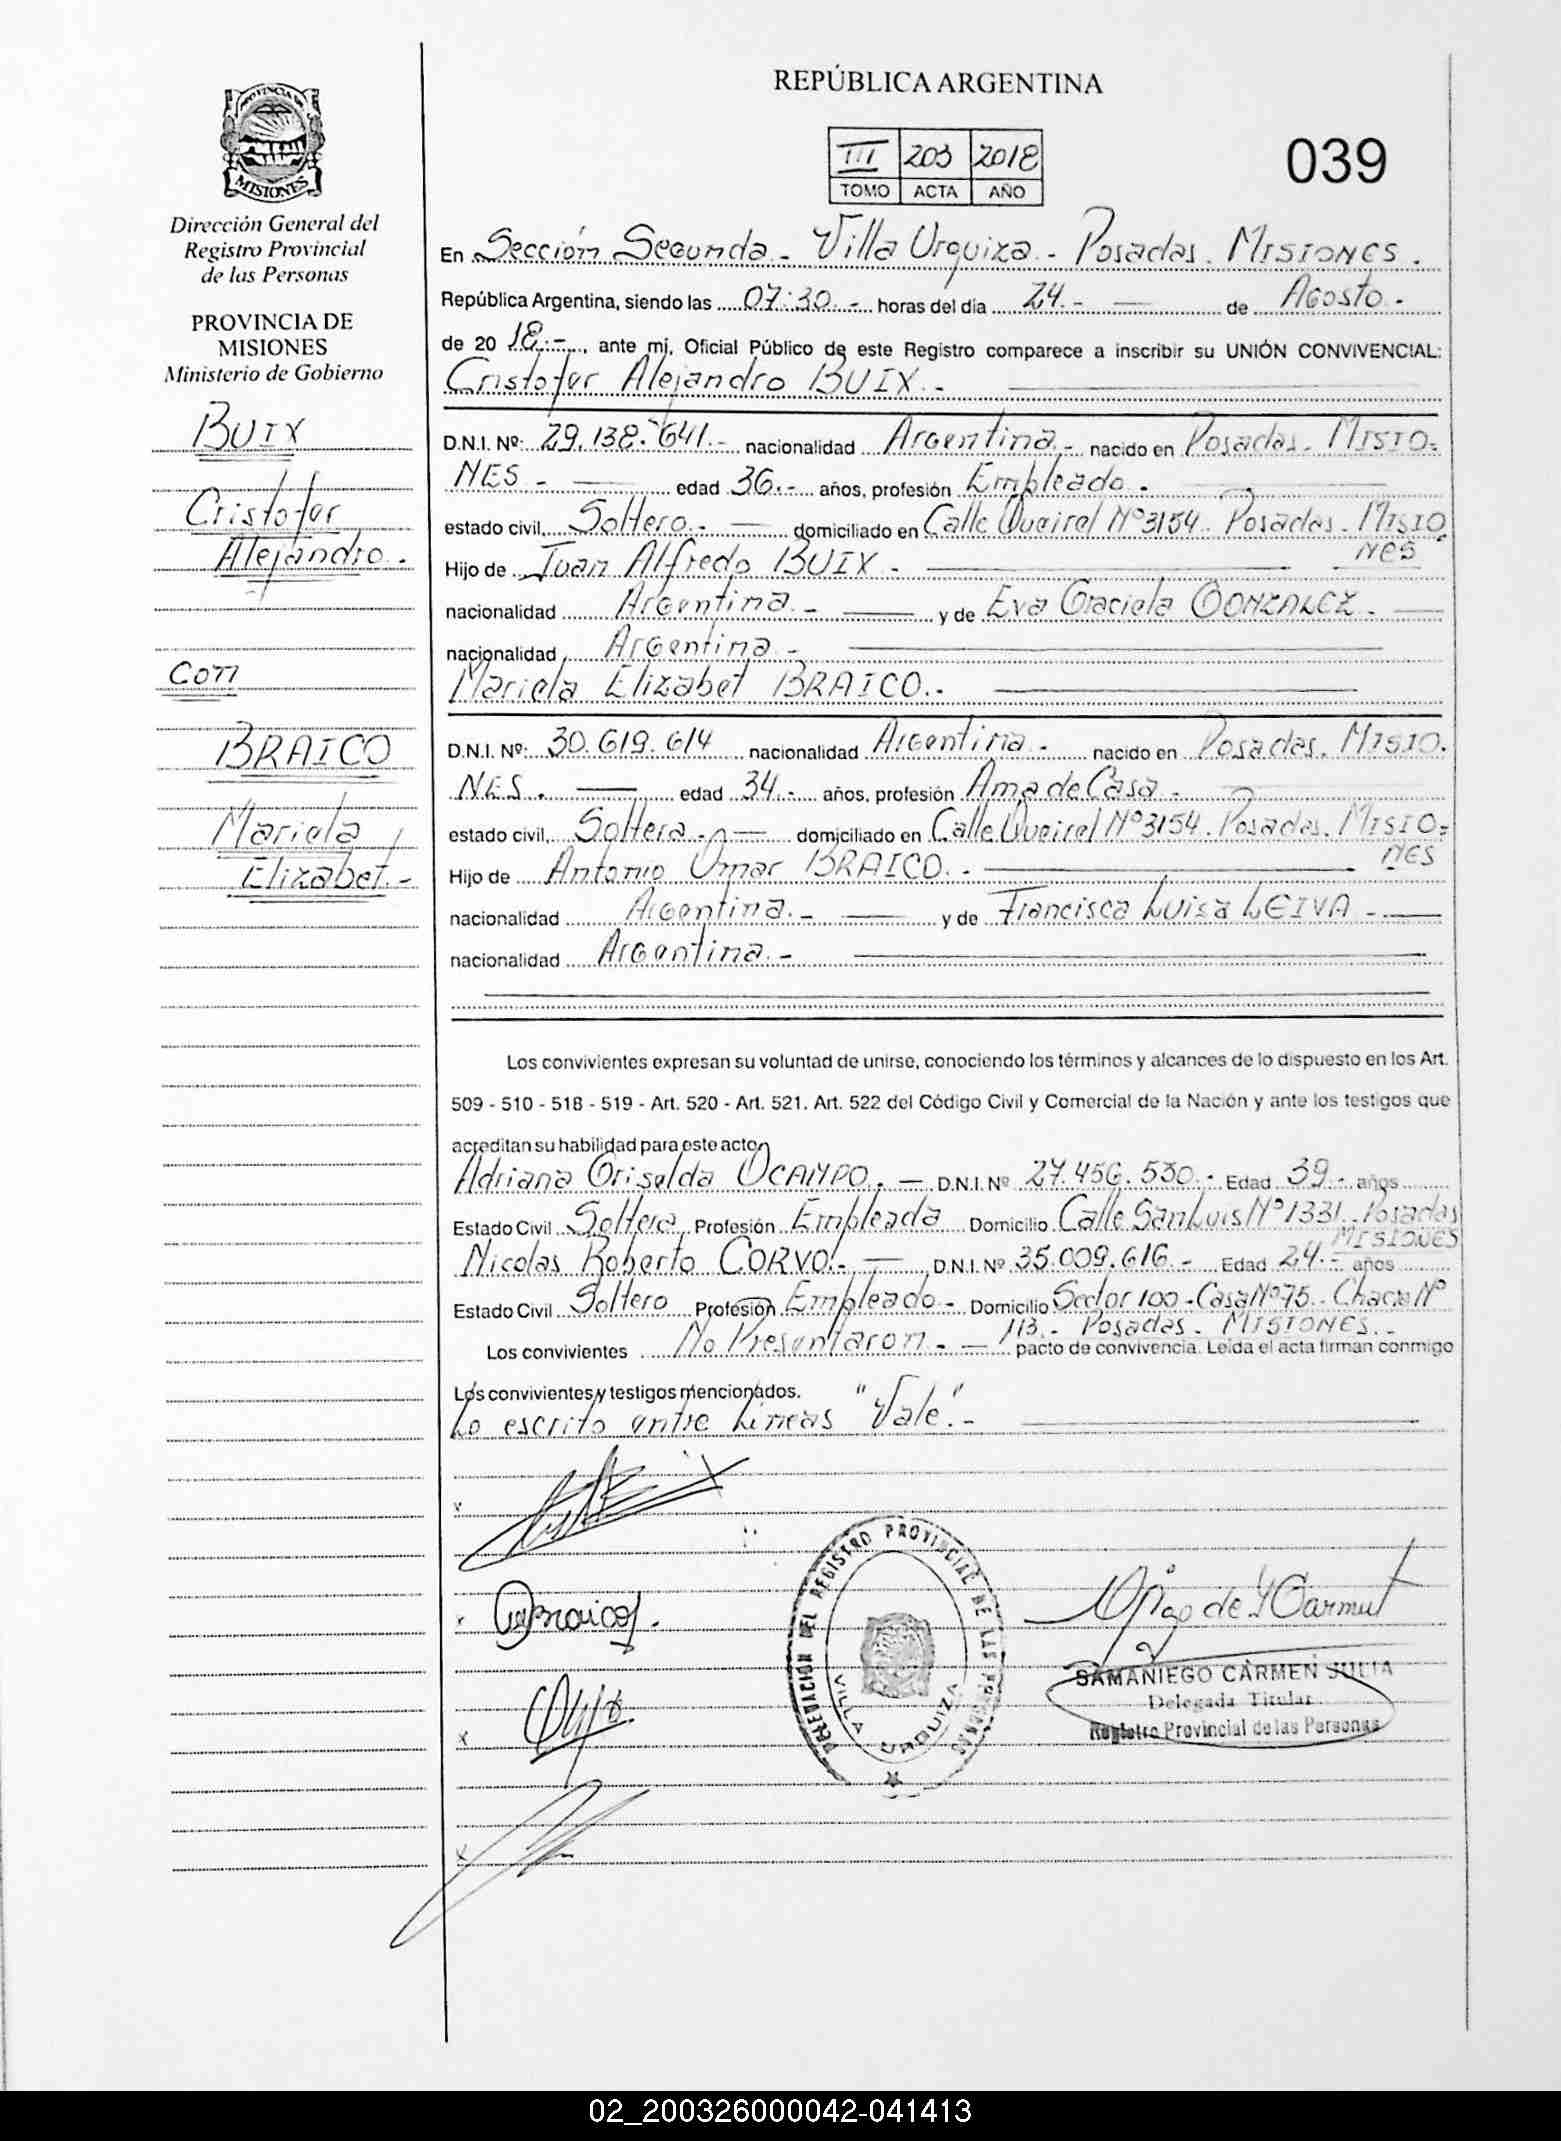 REPÚBLICA ARGENTINA
III 203 2018
TOMO ACTA AÑO
039
PROVINCIA DE
MISIONES
Dirección General del
Registro Provincial
de las Personas
PROVINCIA DE
MISIONES
Ministerio de Gobierno
BUIX
Cristofer
Alejandro.
Con
BRAICO
Mariela
Elizabet.-
En Sección Segunda - Villa Urquiza - Posadas. MISIONES.
República Argentina, siendo las 07:30.- horas del día 24.- de Agosto.-
de 20 18.-, ante mí, Oficial Público de este Registro comparece a inscribir su UNIÓN CONVIVENCIAL:
Cristofer Alejandro BUIX.-
D.N.I. Nº: 29.138.641.- nacionalidad Argentina.- nacido en Posadas. MISIO-
NES - edad 36.- años, profesión Empleado.
estado civil, Soltero.- domiciliado en Calle Queirel Nº3154. Posadas. MISIO
NES
Hijo de Juan Alfredo BUIX -
nacionalidad Argentina.- y de Eva Graciela GONZALEZ.-
nacionalidad Argentina -
Mariela Elizabet BRAICO.-
D.N.I. Nº: 30.619.614 nacionalidad Argentina - nacido en Posadas. MISIO.
NES. edad 34.- años, profesión Ama de Casa -
estado civil, Soltera.- domiciliado en Calle Queirel Nº3154. Posadas. MISIO-
NES
Hijo de Antonio Omar BRAICO.-
nacionalidad Argentina.- y de Francisca Luisa LEIVA -
nacionalidad Argentina.-
Los convivientes expresan su voluntad de unirse, conociendo los términos y alcances de lo dispuesto en los Art.
509 - 510 - 518 - 519 - Art. 520 - Art. 521. Art. 522 del Código Civil y Comercial de la Nación y ante los testigos que
acreditan su habilidad para este acto
Adriana Griselda OCAMPO.- D.N.I. Nº 27.456.530.- Edad 39.- años
Estado Civil Soltera Profesión Empleada Domicilio Calle San Luis Nº1331. Posadas
MISIONES
Nicolas Roberto CORVO.- D.N.I. Nº 35.009.616.- Edad 24.- años
Estado Civil Soltero Profesión Empleado- Domicilio Sector 100 - Casa Nº75 - Chacra Nº
113.- Posadas. MISIONES.-
Los convivientes No Presentaron.- pacto de convivencia. Leída el acta firman conmigo
Los convivientes y testigos mencionados.
Lo escrito entre Lineas "Vale".-
x
x
x
x
DELEGACION DEL REGISTRO PROVINCIAL DE LAS PERSONAS
VILLA URQUIZA
SAMANIEGO CARMEN JULIA
Delegada Titular
Registro Provincial de las Personas
02_200326000042-041413